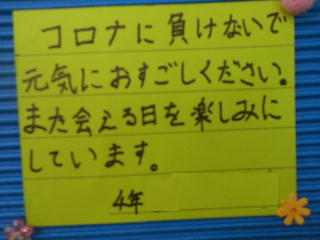 コロナに負けないで
元気におすごしください。
また会える日を楽しみに
しています。
4年